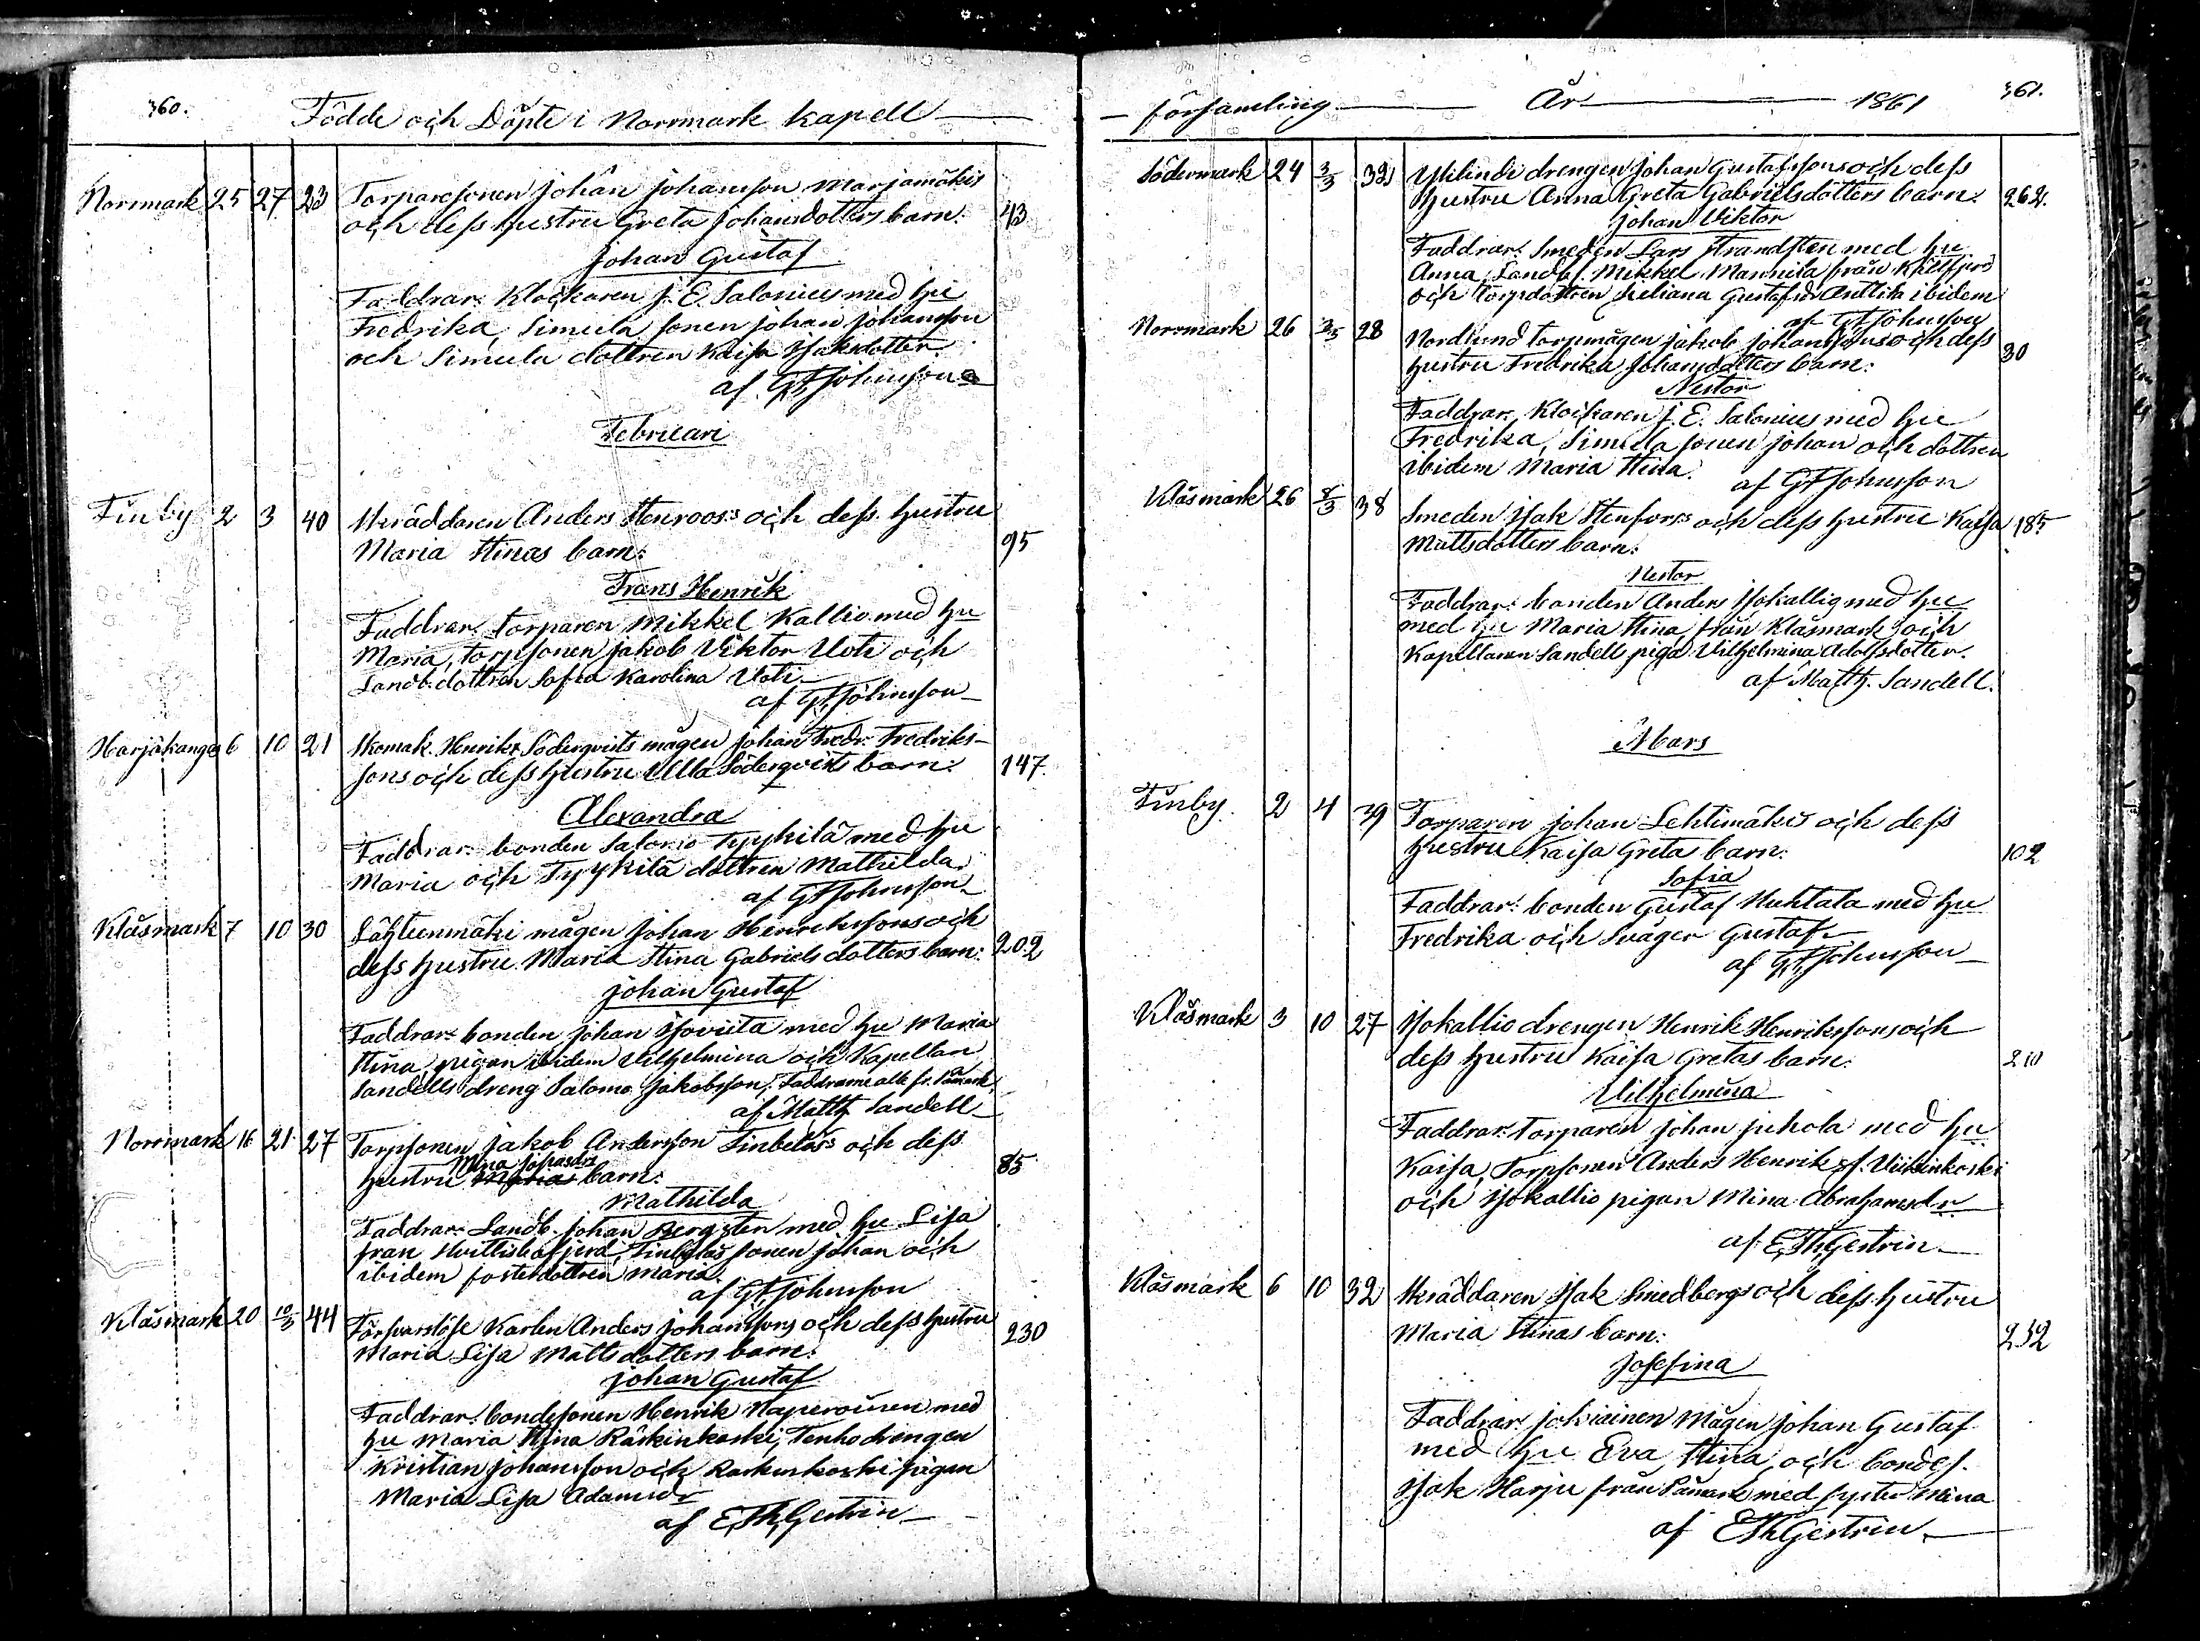 360.
Födde och Döpte i Norrmark kapell
Norrmark 25 27 23 Torparesonen Johan Johansson Marjamäkis
och dess hustru Greta Johansdotters barn: 43
Johan Gustaf
Faddrar: Klockaren J. E. Salonius med hu
Fredrika, Simula sonen Johan Johansson
och Simula dottren Kaisa Isaksdotter.
af GFJohnsson
Februari
Finby 2 3 40 Skräddaren Anders Stenroos's och dess hustru
Maria Stinas barn: 95
Frans Henrik
Faddrar: torparen Mikkel Kallio med hu
Maria, torpsonen Jakob Viktor Uoti och
Landb. dottren Sofia Karolina Uoti
af GFJohnsson
Harjakangas 6 10 21 Skomak. Henrik Söderqvists mågen Johan Fredr. Fredriks-
sons och dess hustru Ulla Söderqvists barn: 147.
Alexandra
Faddrar: bonden Salomo Tyykilä med hu
Maria och Tyykilä dottren Mathilda.
af GFJohnsson
Klåsmark 7 10 30 Lähteenmäki mågen Johan Henrikssons och
dess hustru Maria Stina Gabrielsdotters barn: 202
Johan Gustaf
Faddrar: bonden Johan Isoviita med hu Maria
Stina, pigan ibidem Vilhelmina och Kapellan
Sandells dreng Salomo Jakobsson. Faddrarne alla fr. Påmark.
af Matth Sandell
Norrmark 16 21 27 Torpsonen Jakob Andersson Finbetes's och dess
Mina Johansdr
hustru Marias barn: 85
Mathilda
Faddrar: Landb. Johan Bergsten med hu Lisa
från Hvittisbofjerd, sonen Johan och
ibidem fosterdottren Maria.
af GFJohnsson
Klåsmark 20 10/3 44 Försvarslöse Karlen Anders Johanssons och dess hustru
Maria Lisa Mattsdotters barn: 230
Johan Gustaf
Faddrar: bondesonen Henrik med
hu Maria Stina Räskinkoski, Tenho drengen
Kristian Johansson och Räskinkoski pigan
Maria Lisa Adamsdr
af EThGestrin
församling År 1861 361.
Södermark 24 3/3 32 drengen Johan Gustafssons och dess
hustru Anna Greta Gabrielsdotters barn: 262.
Johan Viktor
Faddrar: Smeden Lars Strandsten med hu
Anna, Landbs. Mikkel Mannila från
och torpdottren Juliana Gustafsdr Anttila ibidem
af GFJohnsson
Norrmark 26 3/3 28 Nordlund torpmågen Jakob Johanssons och dess
hustru Fredrika Johansdotters barn: 30
Nestor
Faddrar: Klockaren J. E. Salonius med hu
Fredrika, Simula sonen Johan och dottren
ibidem Maria Stina. af GFJohnsson
Klåsmark 26 8/3 38 Smeden Isak Stenfors's och dess hustru Kaisa 185
Mattsdotters barn:
Nestor
Faddrar: bonden Anders Isokallio med hu
med hu Maria Stina från Klåsmark och
Kapellanen Sandell piga Vilhelmina Adolfsdotter.
af Matth. Sandell.
Mars
Finby. 2 4 39 Torparen Johan Lehtimäkis och dess
hustru Kaisa Gretas barn: 102
Sofia
Faddrar: bonden Gustaf Huhtala med hu
Fredrika och Svåger Gustaf
af GFJohnsson
Klåsmark 3 10 27 Isokallio drengen Henrik Henrikssons och
dess hustru Kaisa Gretas barn: 210
Vilhelmina
Faddrar: torparen Johan Juhola med hu
Kaisa, Torpsonen Anders Henrik f. Viikinkoski
och Isokallio pigan Mina Abrahamsdr.
af EThGestrin
Klåsmark 6 10 32 Skräddaren Isak Smedbergs och dess hustru
Maria Stinas barn: 232
Josefina
Faddrar: Jokiainen Mågen Johan Gustaf
med hu Eva Stina och bondes.
Isak Harju från Påmark med syster Stina
af EThGestrin